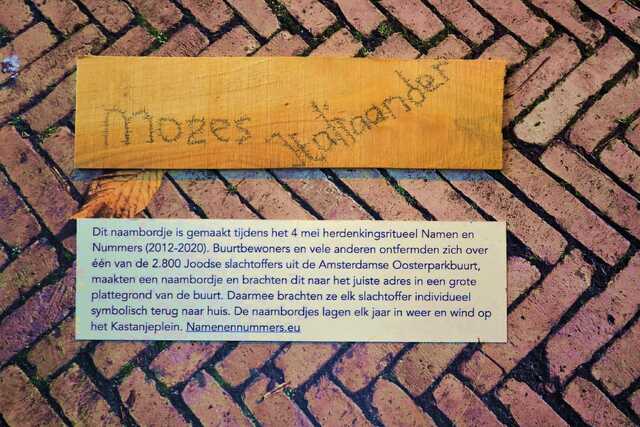 Mozes Italiaander
Dit naambordje is gemaakt tijdens het 4 mei herdenkingsritueel Namen en
Nummers (2012-2020). Buurtbewoners en vele anderen ontfermden zich over
één van de 2.800 Joodse slachtoffers uit de Amsterdamse Oosterparkbuurt,
maakten een naambordje en brachten dit naar het juiste adres in een grote
plattegrond van de buurt. Daarmee brachten ze elk slachtoffer individueel
symbolisch terug naar huis. De naambordjes lagen elk jaar in weer en wind op
het Kastanjeplein. Namenennummers.eu